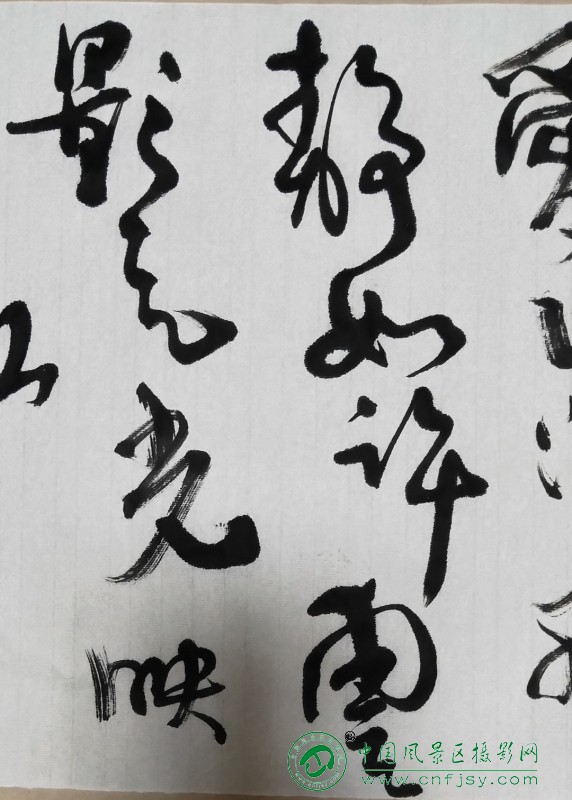 愛
靜如许雲
影天光映
中国风景区摄影网
www.cnfjsy.com